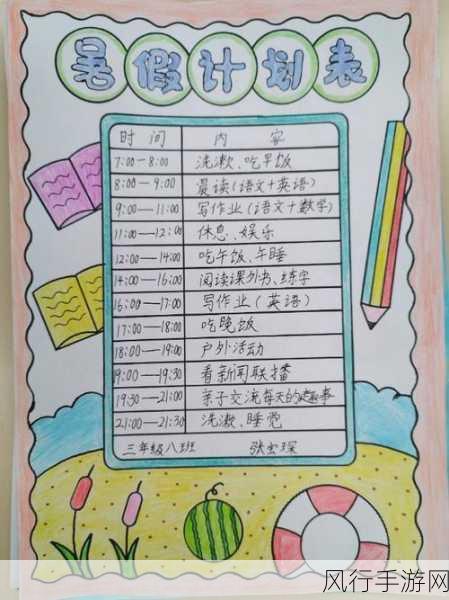 暑假计划表
时 间 内 容
7:00-8:00 洗漱、吃早饭
8:00-9:00 晨读(语文+英语)
9:00-11:00 写作业(语文+数学)
11:00-12:00 休息、娱乐
12:00-14:00 吃午饭、午睡
14:00-16:00 阅读课外书、练字
16:00-17:00 写作业(英语)
17:00-18:00 吃晚饭
18:00-19:00 户外活动
19:00-19:30 看新闻联播
19:30-21:00 亲子交流每天的趣事
21:00-21:30 洗漱、睡觉
三年级八班 张宝琛
风行手游网